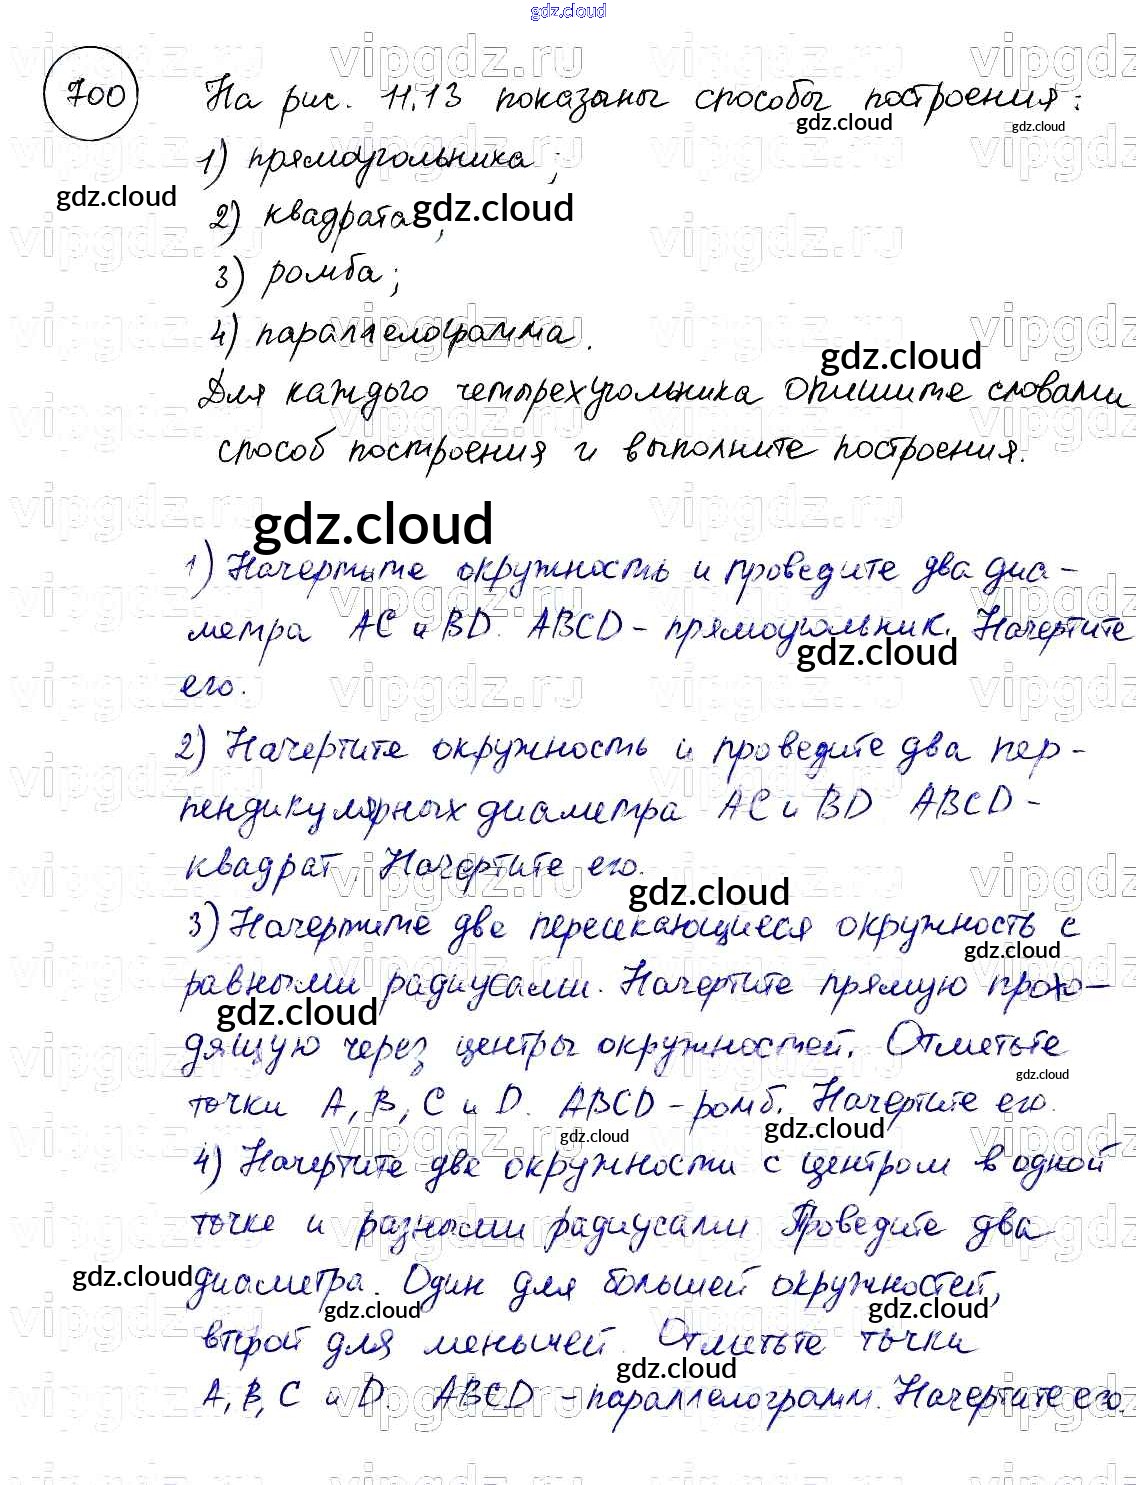 gdz.cloud
700 На рис. 11.13 показаны способы построения:
1) прямоугольника;
2) квадрата;
3) ромба;
4) параллелограмма.
Для каждого четырехугольника опишите словами
способ построения и выполните построения.
1) Начертите окружность и проведите два диа-
метра AC и BD. ABCD - прямоугольник. Начертите
его.
2) Начертите окружность и проведите два пер-
пендикулярных диаметра AC и BD ABCD -
квадрат. Начертите его.
3) Начертите две пересекающиеся окружность с
равными радиусами. Начертите прямую прохо-
дящую через центры окружностей. Отметьте
точки A, B, C и D. ABCD - ромб. Начертите его.
4) Начертите две окружности с центром в одной
точке и разными радиусами Проведите два
диаметра. Один для большей окружностей,
второй для меньшей. Отметьте точки
A, B, C и D. ABCD - параллелограмм. Начертите его.